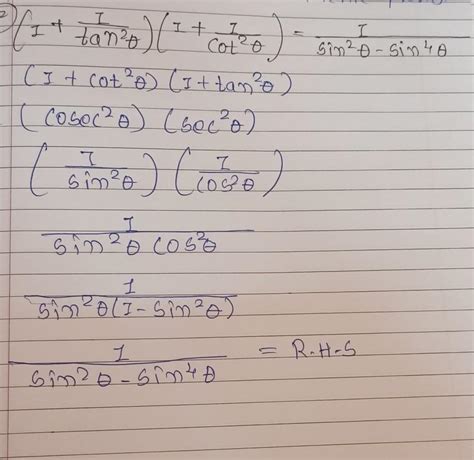 (1 + 1/tan²θ) (1 + 1/cot²θ) = 1/sin²θ - sin⁴θ
(1 + cot²θ) (1 + tan²θ)
(cosec²θ) (sec²θ)
(1/sin²θ) (1/cos²θ)
1/sin²θ cos²θ
1/sin²θ(1 - sin²θ)
1/sin²θ - sin⁴θ = R.H.S